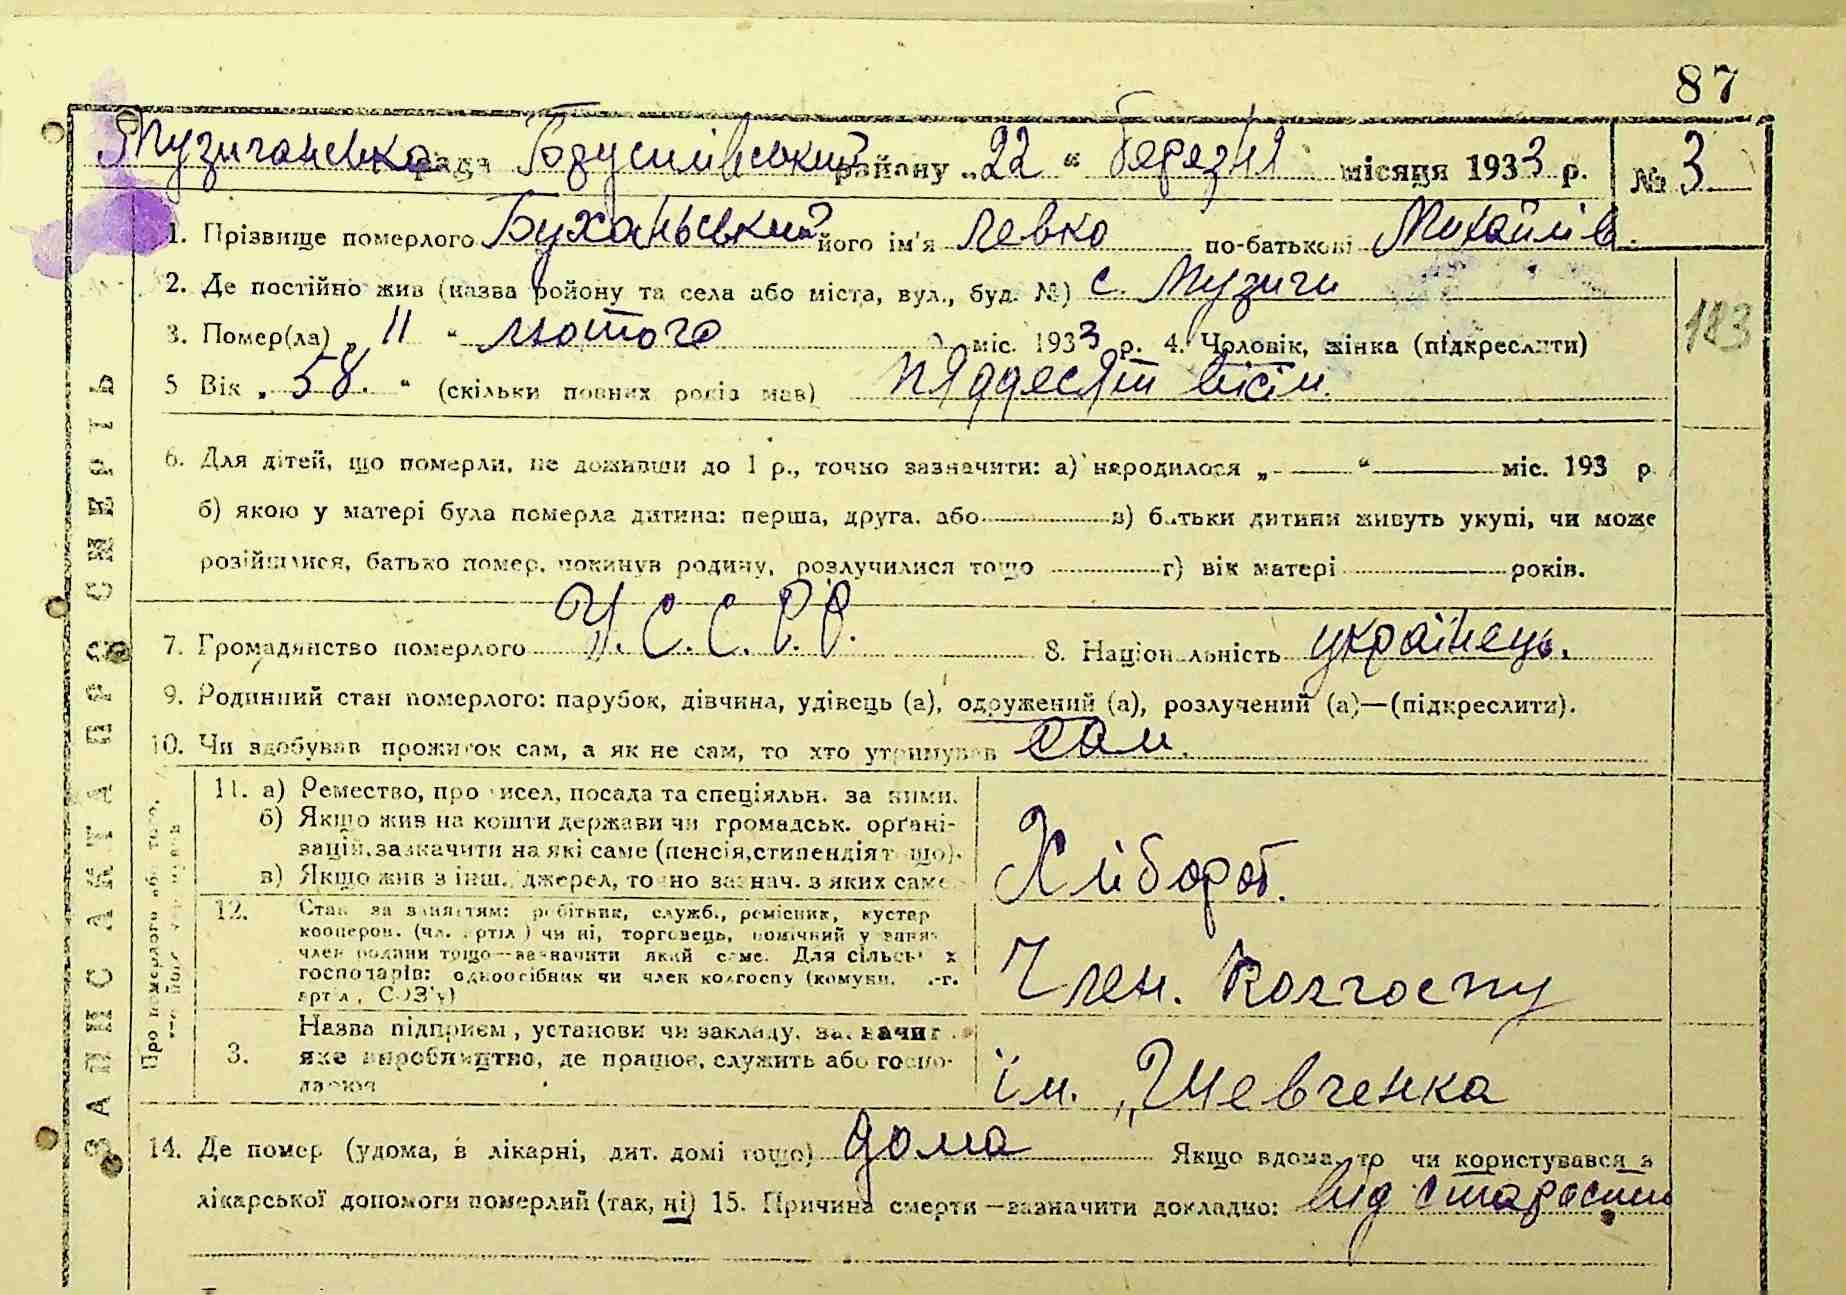 87
Музичанська рада Брусилівський району „22“ березня місяця 1933 р. № 3
1. Прізвище померлого Буханьевкий його ім'я Левко по-батькові Михайлів.
2. Де постійно жив (назва району та села або міста, вул., буд. №) с. Музичи
3. Помер(ла) „11“ лютого міс. 1933 р. 4. Чоловік, жінка (підкреслити)
183
5 Вік „58.“ (скільки повних років мав) пядесят вісім.
6. Для дітей, що померли, не доживши до 1 р., точно зазначити: а) народилося „ — “ — міс. 193 р.
б) якою у матері була померла дитина: перша, друга, або в) батьки дитини живуть укупі, чи може
розійшлися, батько помер, покинув родину, розлучилися тощо г) вік матері років.
7. Громадянство померлого У.С.С.Р.Р. 8. Національність українець.
9. Родинний стан померлого: парубок, дівчина, удівець (а), одружений (а), розлучений (а)—(підкреслити).
10. Чи здобував прожиток сам, а як не сам, то хто утримував сам.
11. а) Ремество, промисел, посада та спеціяльн. за ними.
б) Якщо жив на кошти держави чи громадськ. орґані-
зацій, зазначити на які саме (пенсія, стипендія тощо).
в) Якщо жив з інш. джерел, точно зазнач. з яких саме
Хлібороб.
12. Стан за заняттям: робітник, служб., ремісник, кустар
кооперов. (чл. артіл.) чи ні, торговець, помічний у занят.
член родини тощо—зазначити який саме. Для сільськ х
господарів: одноосібник чи член колгоспу (комуни, с.-г.
артіл., СОЗ'у)
Член. Колгоспу
3. Назва підприєм., установи чи закладу, зазначит
яке виробництво, де працює, служить або госпо-
дарює
ім. „Шевченка
14. Де помер (удома, в лікарні, дит. домі тощо) дома Якщо вдома, то чи користувався з
лікарської допомоги померлий (так, ні) 15. Причина смерти—зазначити докладно: від старости
ЗАПИС АКТА ПРО СМЕРТЬ